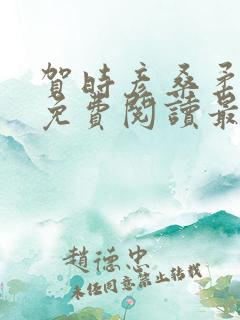 賀時彥桑柔
免費閱讀最
趙德忠
未經同意禁止轉載